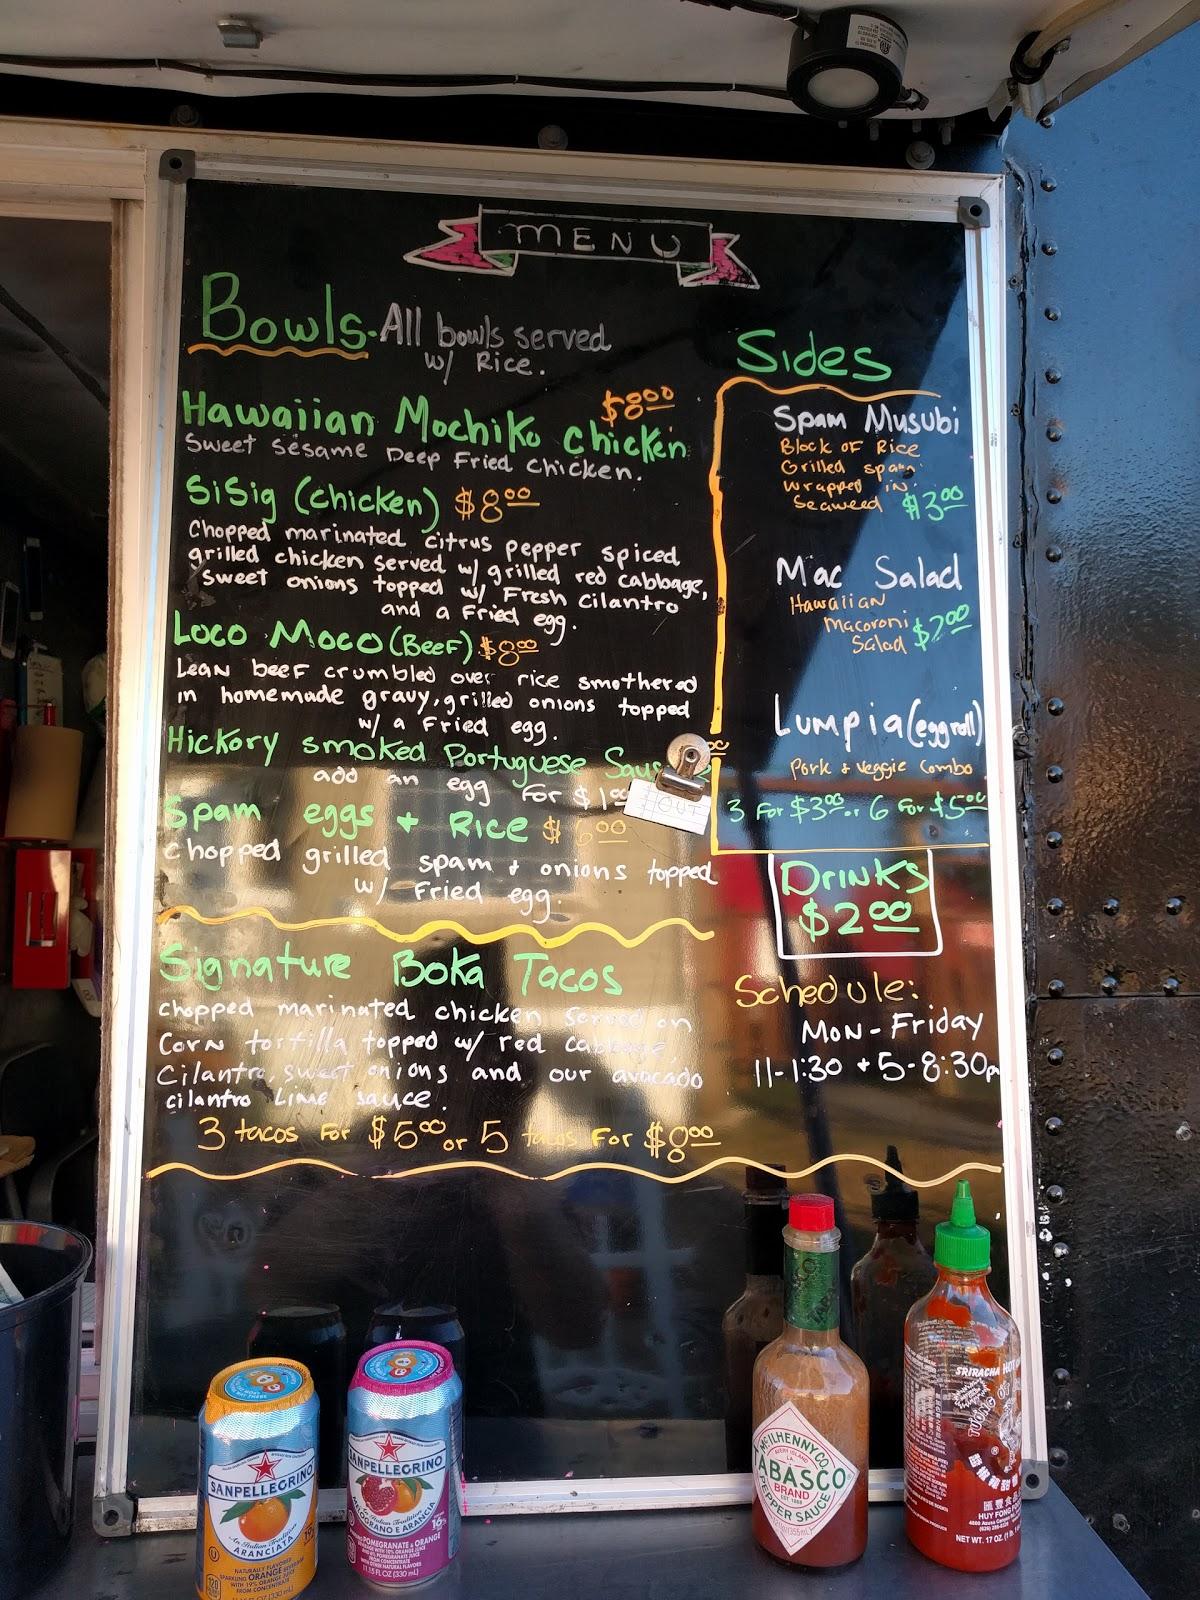 MENU
Bowls- All bowls served
w/ Rice.
Hawaiian Mochiko chicken $8.00
Sweet sesame Deep Fried chicken.
Sisig (chicken) $8.00
Chopped marinated citrus pepper spiced
grilled chicken served w/ grilled red cabbage,
sweet onions topped w/ Fresh cilantro
and a Fried egg.
Loco Moco (Beef) $8.00
Lean beef crumbled over rice smothered
in homemade gravy, grilled onions topped
w/ a Fried egg.
Hickory smoked Portuguese
add an egg for $1.00
OUT
Spam eggs + Rice $6.00
chopped grilled spam + onions topped
w/ Fried egg.
Signature Boka Tacos
chopped marinated chicken served on
Corn tortilla topped w/ red cabbage,
Cilantro, sweet onions and our avocado
cilantro Lime sauce.
3 tacos for $5.00 or 5 tacos For $8.00
Sides
Spam Musubi
Block of Rice
Grilled spam
wrapped in
seaweed $3.00
Mac Salad
Hawaiian
Macoroni
Salad $2.00
Lumpia (eggroll)
Pork + veggie combo
3 For $3.00 or 6 For $5.00
Drinks
$2.00
Schedule:
Mon - Friday
11-1:30 + 5-8:30pm
SANPELLEGRINO
An Italian Tradition
ARANCIATA
NATURALLY FLAVORED
SPARKLING ORANGE BEVERAGE
WITH 19% ORANGE JUICE
FROM CONCENTRATE
SANPELLEGRINO
Italian Tradition
MELOGRANO E ARANCIA
POMEGRANATE & ORANGE
11.15 FL OZ (330 mL)
McILHENNY CO.
AVERY ISLAND
LA.
TABASCO
BRAND
EST. 1868
PEPPER SAUCE
SRIRACHA HOT
HUY FONG FOODS
NET WT. 17 OZ.